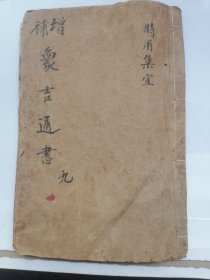 時用集宜
增補
象吉通書
九